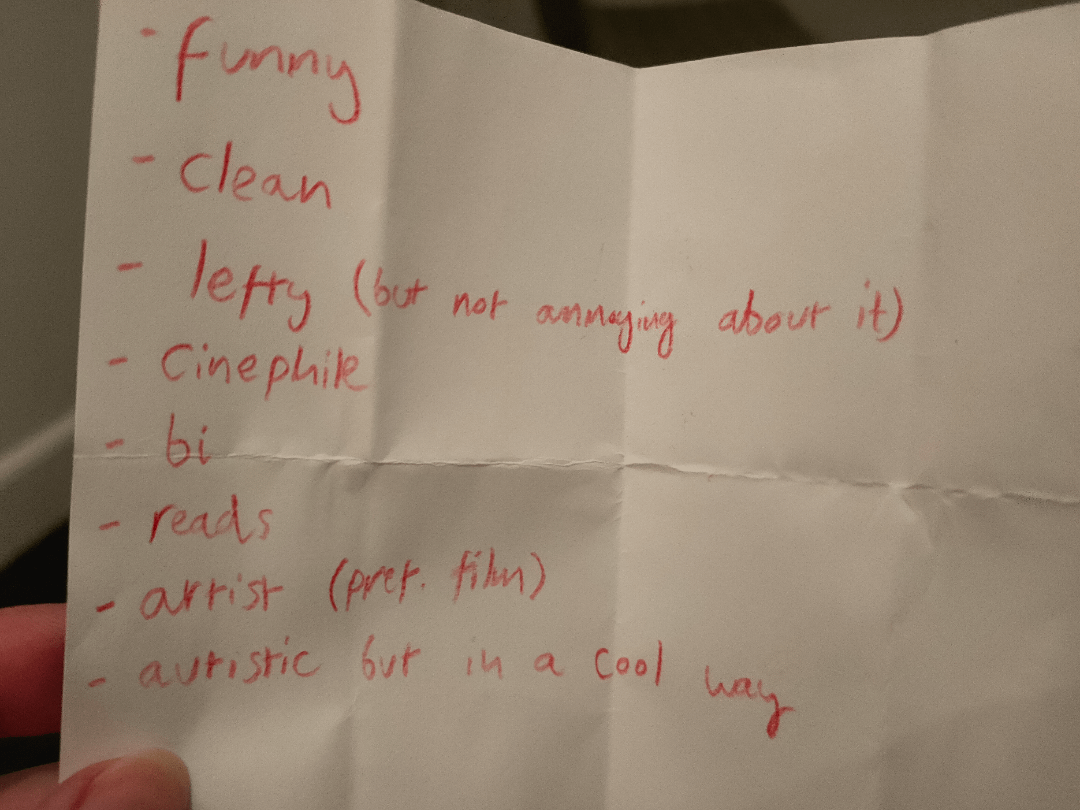 - funny
- clean
- lefty (but not annoying about it)
- Cinephile
- bi
- reads
- artist (pref. film)
- autistic but in a cool way